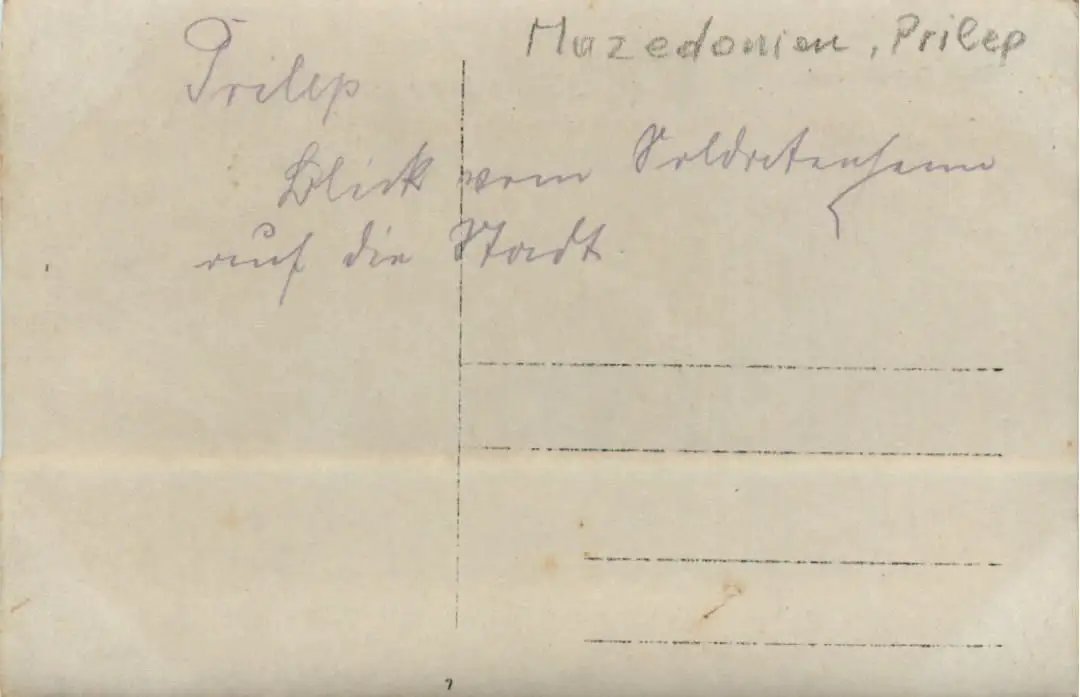 Mazedonien, Prilep
Prilep
Blick vom Soldatenheim
auf die Stadt